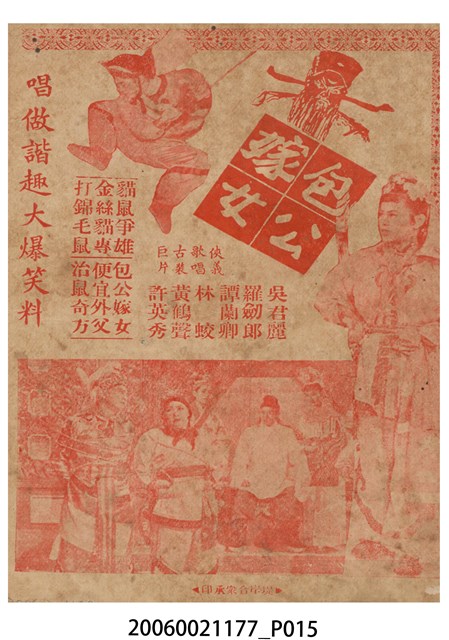 包公
嫁女
俠義
歌唱
古裝
巨片
吳君麗
羅劍郎
譚蘭卿
林蛟
黃鶴聲
許英秀
貓鼠爭雄
金絲貓專
打錦毛鼠
包公嫁女
便宜外父
治鼠奇方
唱做諧趣大爆笑料
堤岸合宗承印
20060021177_P015